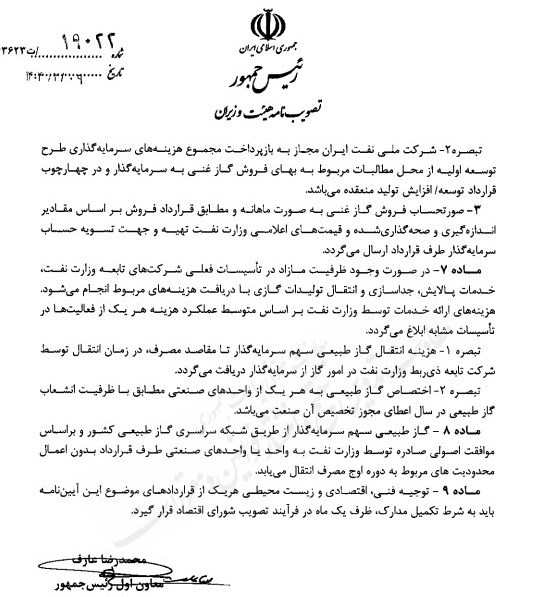 جمهوری اسلامی ایران
رئیس جمهور
تصویب نامه هیئت وزیران
شماره ۱۹۰۲۲/ت۶۳۶۲۳
تاریخ
تبصره۲- شرکت ملی نفت ایران مجاز به بازپرداخت مجموع هزینه‌های سرمایه‌گذاری طرح
توسعه اولیه از محل مطالبات مربوط به بهای فروش گاز غنی به سرمایه‌گذار و در چهارچوب
قرارداد توسعه/ افزایش تولید منعقده می‌باشد.
۳- صورتحساب فروش گاز غنی به صورت ماهانه و مطابق قرارداد فروش بر اساس مقادیر
اندازه‌گیری و صحه‌گذاری‌شده و قیمت‌های اعلامی وزارت نفت تهیه و جهت تسویه حساب
سرمایه‌گذار طرف قرارداد ارسال می‌گردد.
ماده ۷- در صورت وجود ظرفیت مازاد در تأسیسات فعلی شرکت‌های تابعه وزارت نفت،
خدمات پالایش، جداسازی و انتقال تولیدات گازی با دریافت هزینه‌های مربوط انجام می‌شود.
هزینه‌های ارائه خدمات توسط وزارت نفت بر اساس متوسط عملکرد هزینه هر یک از فعالیت‌ها در
تأسیسات مشابه ابلاغ می‌گردد.
تبصره ۱- هزینه انتقال گاز طبیعی سهم سرمایه‌گذار تا مقاصد مصرف، در زمان انتقال توسط
شرکت تابعه ذی‌ربط وزارت نفت در امور گاز از سرمایه‌گذار دریافت می‌گردد.
تبصره ۲- اختصاص گاز طبیعی به هر یک از واحدهای صنعتی مطابق با ظرفیت انشعاب
گاز طبیعی در سال اعطای مجوز تخصیص آن صنعت می‌باشد.
ماده ۸ - گاز طبیعی سهم سرمایه‌گذار از طریق شبکه سراسری گاز طبیعی کشور و براساس
موافقت اصولی صادره توسط وزارت نفت به واحد یا واحدهای صنعتی طرف قرارداد بدون اعمال
محدودیت های مربوط به دوره اوج مصرف انتقال می‌یابد.
ماده ۹ - توجیه فنی، اقتصادی و زیست محیطی هریک از قراردادهای موضوع این آیین‌نامه
باید به شرط تکمیل مدارک، ظرف یک ماه در فرآیند تصویب شورای اقتصاد قرار گیرد.
محمدرضا عارف
معاون اول رئیس‌جمهور